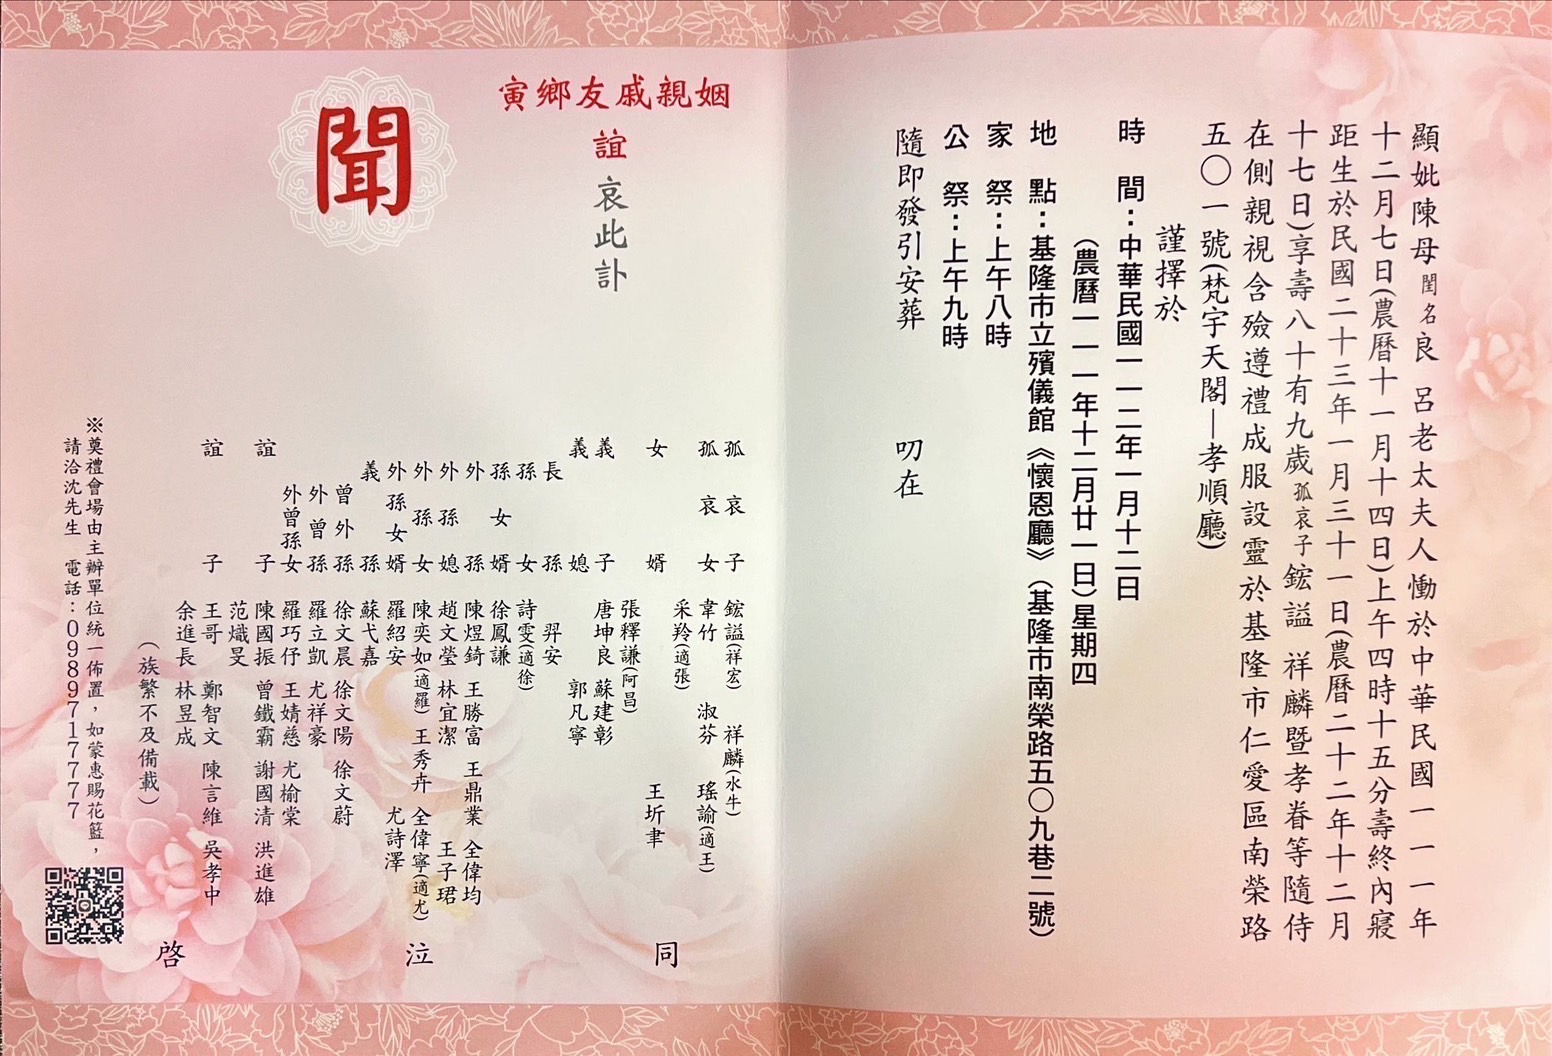 顯妣陳母閨名良　呂老太夫人慟於中華民國一一一年
十二月七日(農曆十一月十四日)上午四時十五分壽終內寢
距生於民國二十三年一月三十一日(農曆二十二年十二月
十七日)享壽八十有九歲孤哀子鋐謚 祥麟暨孝眷等隨侍
在側親視含殮遵禮成服設靈於基隆市仁愛區南榮路
五〇一號(梵宇天閣—孝順廳)
謹擇於
時　間：中華民國一一二年一月十二日
(農曆一一一年十二月廿一日)星期四
地　點：基隆市立殯儀館《懷恩廳》(基隆市南榮路五〇九巷二號)
家　祭：上午八時
公　祭：上午九時
隨即發引安葬　　叨在
姻親戚友鄉寅
誼
哀此訃
聞
孤哀子 鋐謚(祥宏) 祥麟(水牛)
孤哀女 韋竹 淑芬 瑤諭(適王)
采羚(適張)
女婿 王圻聿
張釋謙(阿昌)
義子 唐坤良 蘇建彰
義媳 郭凡寧
長孫 羿安
孫女 詩雯(適徐)
孫女婿 徐鳳謙
外孫 陳煜錡 王勝富 王鼎業 全偉均
外孫媳 趙文瑩 林宜潔 王子珺
外孫女 陳奕如(適羅) 王秀卉 全偉寧(適尤)
外孫女婿 羅紹安 尤詩澤
義孫 蘇弋嘉
曾外孫 徐文晨 徐文陽 徐文蔚
外曾孫 羅立凱 尤祥豪
外曾孫女 羅巧伃 王婧慈 尤榆棠
誼子 陳國振 曾鐵霸 謝國清 洪進雄
范熾旻
誼子 王哥 鄭智文 陳言維 吳孝中
余進長 林昱成
(族繁不及備載)
同泣啓
※奠禮會場由主辦單位統一佈置，如蒙惠賜花籃，
請洽沈先生 電話：0989717777